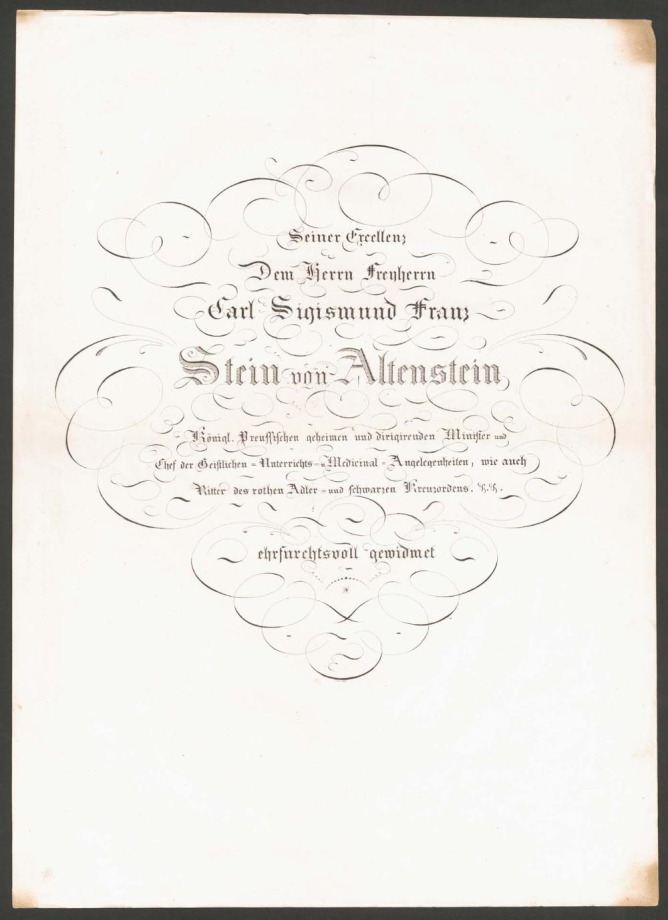 Seiner Excellenz
Dem Herrn Freyherrn
Carl Sigismund Franz
Stein von Altenstein
Königl. Preussischen geheimen und dirigirenden Minister und
Chef der Geistlichen-Unterrichts-Medicinal-Angelegenheiten, wie auch
Ritter des rothen Adler-und schwarzen Kreuzordens. &. &.
ehrfurchtsvoll gewidmet